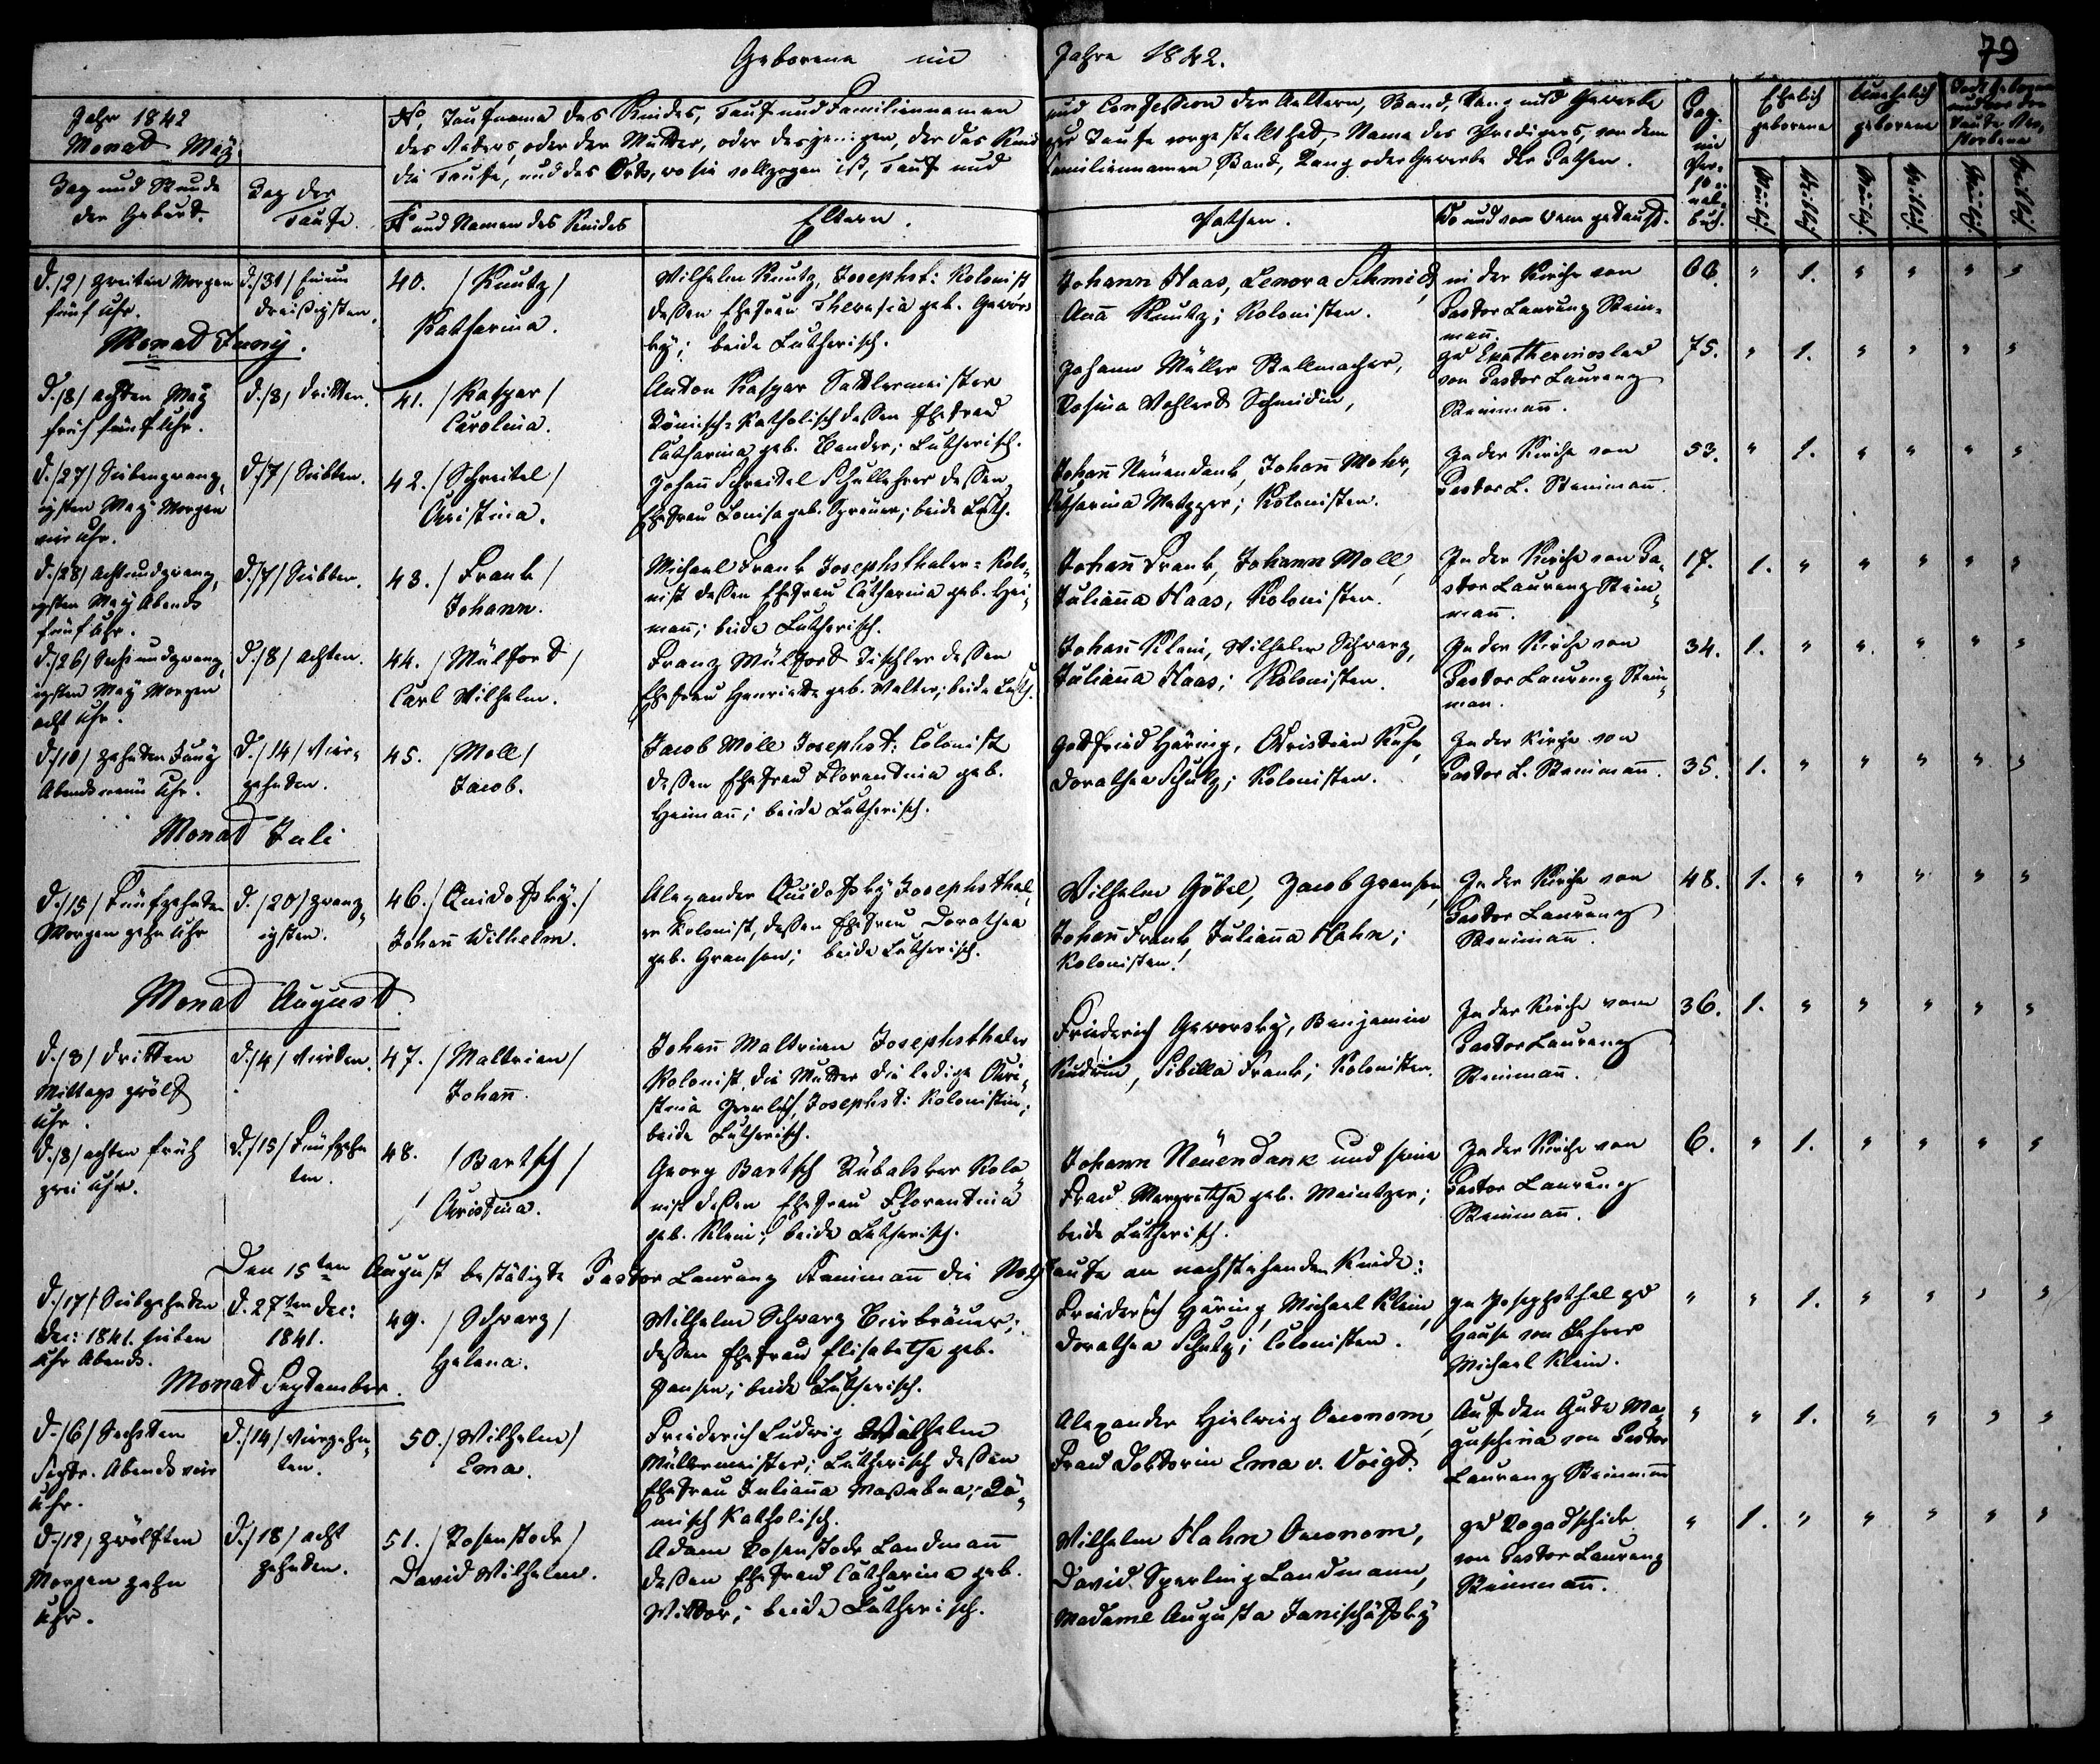 Geborene im Jahre 1842.
79
Jahr 1842
Monat May.
Tag und Stunde
der Geburt.
Tag der
Taufe.
No, Taufname des Kindes, Tauf und Familiennamen
des Vaters, oder der Mutter, oder desjenigen, der das Kind
die Taufe, und des Orts, wo sie vollzogen ist, Tauf und
No und Namen des Kindes
Eltern.
und Confession der Aeltern, Stand, Rang und Gewerbe
zur Taufe vorgestellt hat, Name des Predigers, von dem
Familiennamen, Stand, Rang oder Gewerbe der Pathen.
Pathen.
Wo und von wem getauft.
Pag.
im
Per-
so-
nal-
buch.
Ehelich
geborene
Unehelich
geborene
Todt geborene
und vor der
Taufe Ver-
storbene
Männlich.
Weiblich.
Männlich.
Weiblich.
Männlich.
Weiblich.
d. /2/ zweiten Morgen
fünf Uhr.
d. /31/ Einun
dreißigsten.
40. /Knutz/
Katharina.
Wilhelm Knutz, Josephst: Kolonist,
deßen Ehefrau Theresia geb. Gewors
ky; beide Lutherisch.
Johann Haas, Lenora Schmidt,
Ana Knutz; Kolonisten.
in der Kirche von
Pastor Laurenz Stein-
man̄.
66. " 1. " " " "
Monat Juny.
d. /8/ achten May
früh fünf Uhr.
d. /3/ dritten.
41. /Kaspar/
Carolina.
Anton Kaspar Sattlermeister
Römisch-Katholisch deßen Ehefrau
Catharina geb. Bender; Lutherisch.
Johann Müller Stellmacher,
Rosina Wohlerd Schmidin,
zu Ekatherinoslaw
von Pastor Laurenz
Steinman̄.
75. " 1. " " " "
d. /27/ Siebenzwanz,
igsten May Morgen
vier Uhr.
d. /7/ Siebten.
42. /Schreitel/
Christina.
Johan̄ Schreitel Schullehrer deßen
Ehefrau Louisa geb. Spreuer; beide Luth.
Johan̄ Neuendank, Johan̄ Mohr,
Catharina Metzger; Kolonisten.
In der Kirche von
Pastor L. Steinman̄.
53. " 1. " " " "
d. /28/ Achtundzwanz,
igsten May Abends
fünf Uhr.
d. /7/ Siebten.
43. /Frank/
Johann.
Michael Frank Josephsthaler-Kolo,
nist deßen Ehefrau Catharina geb. Hei,
man̄; beide Lutherisch.
Johan̄ Frank, Johann Moll,
Julian̄a Haas, Kolonisten.
In der Kirche von Pa,
stor Laurenz Stein,
man̄.
17. 1. " " " " "
d. /26/ Sechsundzwanz,
igsten May Morgen
acht Uhr.
d. /8/ achten.
44. /Mülford/
Carl Wilhelm.
Franz Mülford Tischler deßen
Ehefrau Henriette geb. Walter; beide Luth.
Johan̄ Klein, Wilhelm Schwarz,
Julian̄a Haas; Kolonisten.
In der Kirche von
Pastor Laurenz Stein,
man.
34. 1. " " " " "
d. /10/ zehnten Juny
Abends neun Uhr.
d. /14/ Vier-
zehnten.
45. /Moll/
Jacob.
Jacob Moll Josephst: Colonist
deßen Ehefrau Florentina geb.
Heiman̄; beide Lutherisch.
Gottfried Häring, Christian Kuhn,
Dorathea Schulz; Kolonisten.
In der Kirche von
Pastor L. Steinman̄.
35. 1. " " " " "
Monat Juli
d. /15/ Fünfzehnten
Morgen zehn Uhr
d. /20/ zwanz,
igsten.
46. /Quidofsky./
Johan̄ Wilhelm.
Alexander Quidofsky Josephsthal,
er Kolonist, deßen Ehefrau Dorathea
geb. Gransen; beide Lutherisch.
Wilhelm Göbel, Jacob Gransen,
Johan̄ Frank, Julian̄a Hahn;
Kolonisten!
In der Kirche von
Pastor Laurenz
Steinman̄.
48. 1. " " " " "
Monat August.
d. /3/ dritten
Mittags zwölf
Uhr.
d. /4/ Vierten.
47. /Maltrian/
Johan̄.
Johan̄ Maltrian Josephsthaler
Kolonist, die Mutter die ledige Chri,
stina Gerlich, Josephst: Kolonistin;
beide Lutherisch.
Friederich Geworsky, Benjamin
Sibilla Frank; Kolonisten.
In der Kirche vom
Pastor Laurenz
Steinman̄.
36. 1. " " " " "
d. /8/ achten früh
zwei Uhr.
d. /15/ Fünfzehn
ten.
48. /Bartsch/
/Christina.
Georg Bartsch Rübalsker Kolo
nist deßen Ehefrau Florentina
geb. Klein; beide Lutherisch.
Johann Neuendank und seine
Frau Margretha geb. Meintzer;
beide Lutherisch.
In der Kirche von
Pastor Laurenz
Steinman̄.
6. " 1. " " " "
Den 15ten August bestätigte Pastor Laurenz Steinman̄ die Nothtaufe an nachstehenden Kinde:
d. /17/ Siebzehnten
Dec: 1841. sieben
Uhr Abends.
d. 27ten Dec:
1841.
49. /Schwarz/
Helena.
Wilhelm Schwarz Bierbräuer;
deßen Ehefrau Elisabetha geb.
Jansen; beide Lutherisch.
Friederich Häring, Michael Klein,
Dorathea Schulz; Colonisten.
In Josephsthal zu
Hause von Lehrer
Michael Klein.
" " 1. " " " "
Monat September.
d. /6/ Sechsten
Septr. Abends vier
Uhr.
d. /14/ Vierzehn,
ten.
50. /Wilhelm/
Ema.
Friederich Ludwig Wilhelm
Müllermeister; Lutherisch deßen
Ehefrau Julian̄a; Rö,
misch Katholisch.
Alexander Hielwig Oeconom,
Frau Doktorin Ema v. Voigt.
Auf den Gute Ma,
guschina von Pastor
Laurenz Steinman̄
" " 1. " " " "
d. /12/ zwölften
Morgen zehn
Uhr.
d. /18/ acht
zehnten.
51. /Rosenstock/
David Wilhelm.
Adam Rosenstock Landman̄
deßen Ehefrau Catharina geb.
Wittor; beide Lutherisch.
Wilhelm Hahn Oeconom,
David Sperling Landmann,
Madame Augusta Janischäfsky
zu Rogadschick
von Pastor Laurenz
Steinman̄.
" 1. " " " " "